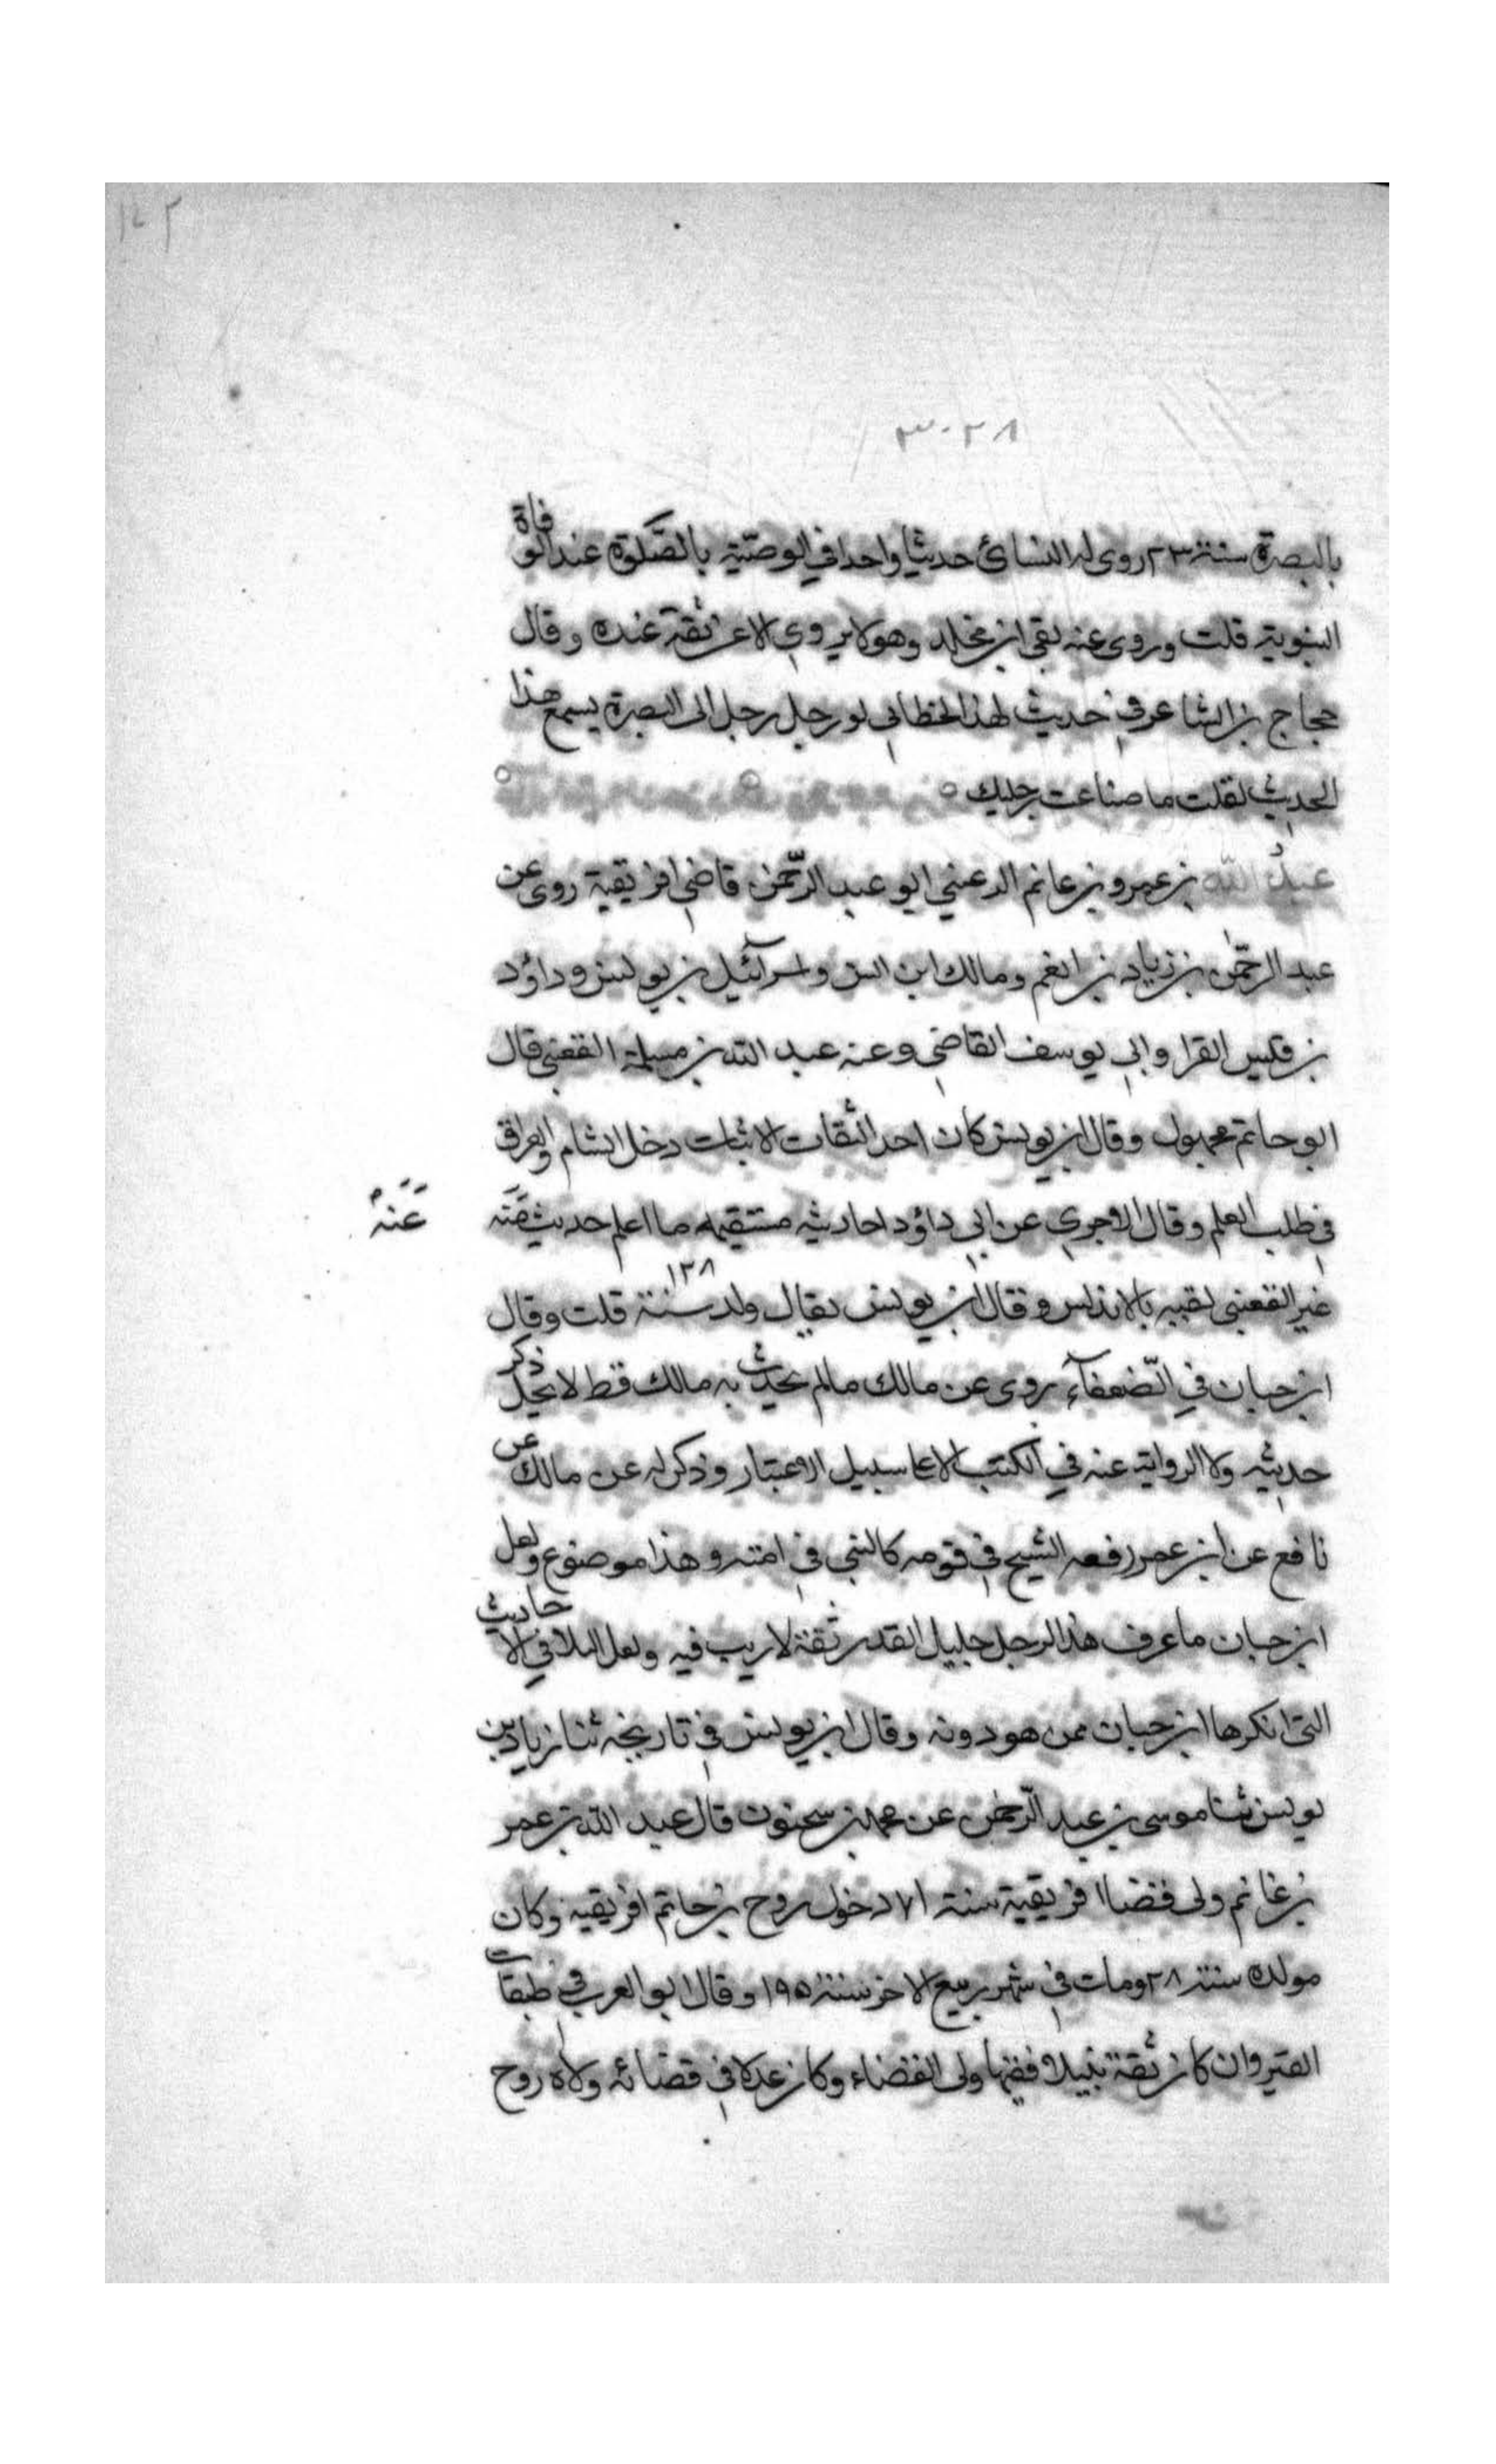 ١٤٢
٣٠٢٨
بالبصرة سنة ٢٣٣ روى له النسائ حديثا واحدا في الوصية بالصلوة عند الوفاة
النبوية قلت وروى عنه بقي ابن مخلد وهو لا يروي الا عن ثقة عنده وقال
حجاج بن الشاعر في حديث لهذا الخطابي لو رحل رجل الى البصرة يسمع هذا
الحديث لقلت ما ضاعت رحليك
عبد الله بن عمرو بن غانم الرعيني ابو عبد الرحمن قاضي افريقية روى عن
عبد الرحمن بن زياد بن انعم ومالك ابن انس واسرائيل بن يونس وداؤد
بن قيس الفرا وابي يوسف القاضي وعنه عبد الله بن مسلمة القعنبي قال
ابو حاتم مجهول وقال ابن يونس كان احد الثقات الاثبات دخل الشام والعراق
في طلب العلم وقال الاجري عن ابي داؤد احاديثه مستقيمه ما اعلم حديث
عنه
غير القعنبي لقيه بالاندلس وقال ابن يونس يقال ولد سنة ١٢٨ قلت وقال
ابن حبان في الضعفآء روى عن مالك ما لم يحدث به مالك قط لا يحل ذكر
حديثه ولا الرواية عنه في الكتب الا على سبيل الاعتبار وذكر له عن مالك عن
نافع عن ابن عمر رفعه الشيخ في قومه كالنبي في امته وهذا موضوع ولعل
ابن حبان ما عرف هذا الرجل جليل القدر ثقة لا ريب فيه ولعل البلا في الاحاديث
التى انكرها ابن حبان ممن هو دونه وقال ابن يونس في تاريخه ثنا زياد بن
يونس ثنا موسى بن عبد الرحمن عن محمد بن سحنون قال عبد الله بن عمر
بن غانم ولى قضا افريقية سنة ١٧١ دخول روح بن حاتم افريقيه وكان
مولده سنة ٢٨ ومات في شهر ربيع الاخر سنة ١٩٥ وقال ابو العرب في طبقات
القيروان كان ثقة نبيلا فقيها ولى القضاء وكان عدلا في قضائه ولاه روح